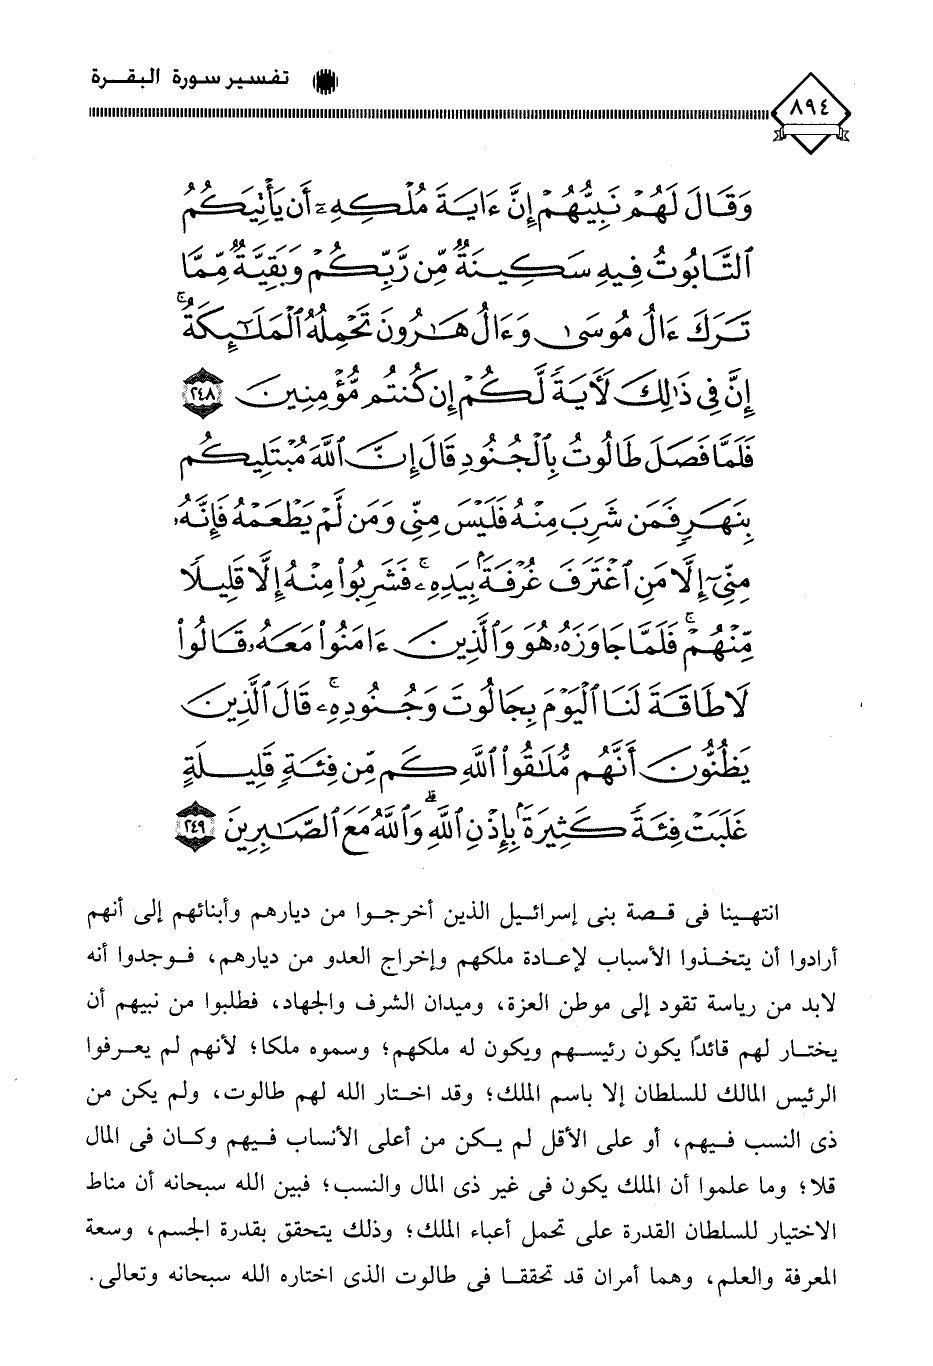 تفسير سورة البقرة
٨٩٤
وَقَالَ لَهُمْ نَبِيُّهُمْ إِنَّ ءَايَةَ مُلْكِهِۦٓ أَن يَأْتِيَكُمُ
ٱلتَّابُوتُ فِيهِ سَكِينَةٌ مِّن رَّبِّكُمْ وَبَقِيَّةٌ مِّمَّا
تَرَكَ ءَالُ مُوسَىٰ وَءَالُ هَٰرُونَ تَحْمِلُهُ ٱلْمَلَٰٓئِكَةُ ۚ
إِنَّ فِى ذَٰلِكَ لَءَايَةً لَّكُمْ إِن كُنتُم مُّؤْمِنِينَ ٢٤٨
فَلَمَّا فَصَلَ طَالُوتُ بِٱلْجُنُودِ قَالَ إِنَّ ٱللَّهَ مُبْتَلِيكُم
بِنَهَرٍ فَمَن شَرِبَ مِنْهُ فَلَيْسَ مِنِّى وَمَن لَّمْ يَطْعَمْهُ فَإِنَّهُۥ
مِنِّىٓ إِلَّا مَنِ ٱغْتَرَفَ غُرْفَةًۢ بِيَدِهِۦ ۚ فَشَرِبُوا۟ مِنْهُ إِلَّا قَلِيلًا
مِّنْهُمْ ۚ فَلَمَّا جَاوَزَهُۥ هُوَ وَٱلَّذِينَ ءَامَنُوا۟ مَعَهُۥ قَالُوا۟
لَا طَاقَةَ لَنَا ٱلْيَوْمَ بِجَالُوتَ وَجُنُودِهِۦ ۚ قَالَ ٱلَّذِينَ
يَظُنُّونَ أَنَّهُم مُّلَٰقُوا۟ ٱللَّهِ كَم مِّن فِئَةٍ قَلِيلَةٍ
غَلَبَتْ فِئَةً كَثِيرَةًۢ بِإِذْنِ ٱللَّهِ ۗ وَٱللَّهُ مَعَ ٱلصَّٰبِرِينَ ٢٤٩
انتهينا فى قصة بنى إسرائيل الذين أخرجوا من ديارهم وأبنائهم إلى أنهم
أرادوا أن يتخذوا الأسباب لإعادة ملكهم وإخراج العدو من ديارهم، فوجدوا أنه
لابد من رياسة تقود إلى موطن العزة، وميدان الشرف والجهاد، فطلبوا من نبيهم أن
يختار لهم قائدًا يكون رئيسهم ويكون له ملكهم؛ وسموه ملكا؛ لأنهم لم يعرفوا
الرئيس المالك للسلطان إلا باسم الملك؛ وقد اختار الله لهم طالوت، ولم يكن من
ذى النسب فيهم، أو على الأقل لم يكن من أعلى الأنساب فيهم وكان فى المال
قلا؛ وما علموا أن الملك يكون فى غير ذى المال والنسب؛ فبين الله سبحانه أن مناط
الاختيار للسلطان القدرة على تحمل أعباء الملك؛ وذلك يتحقق بقدرة الجسم، وسعة
المعرفة والعلم، وهما أمران قد تحققا فى طالوت الذى اختاره الله سبحانه وتعالى.